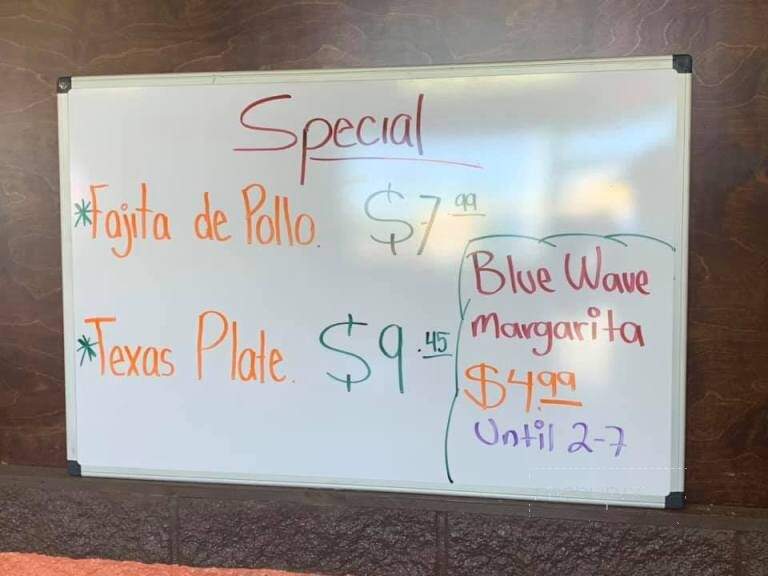 Special
*Fajita de Pollo. $7.99
*Texas Plate. $9.45
Blue Wave
Margarita
$4.99
Until 2-7